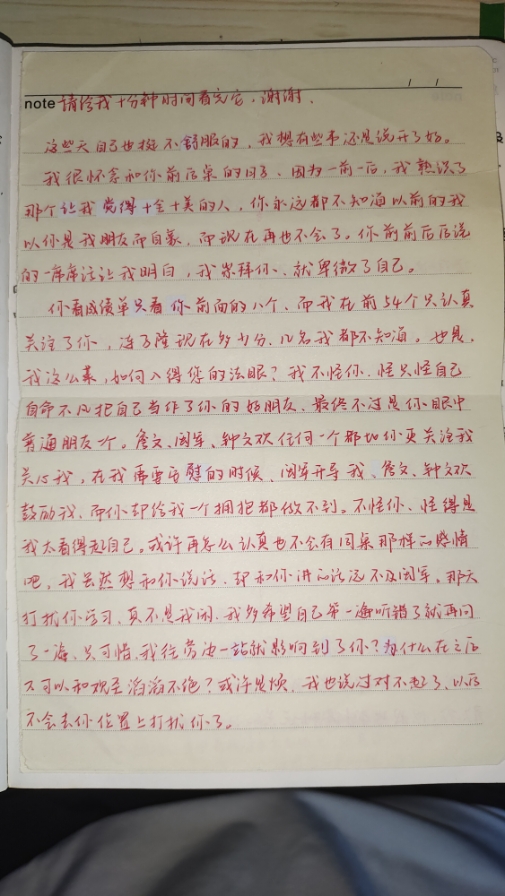 note 请给我十分钟时间看完它，谢谢、
这些天自己也挺不舒服的，我想有些事还是说开了好。
我很怀念和你前后桌的日子、因为一前一后，我熟识了
那个让我觉得十全十美的人，你永远都不知道以前的我
以你是我朋友而自豪，而现在再也不会了。你前前后后说
的一席席话让我明白，我崇拜你、就卑微了自己。
你看成绩单只看你前面的八个、而我在前54个只认真
关注了你，连了隆现在多少分、几名我都不知道。也是，
我这么菜，如何入得您的法眼？我不怪你、怪只怪自己
自命不凡把自己当作了你的好朋友、最终不过是你眼中
普通朋友一个。詹文、闵军、钟文欢任何一个都比你更关注我
关心我，在我需要安慰的时候、闵军开导我、詹文、钟文欢
鼓励我、而你却给我一个拥抱都做不到。不怪你、怪得是
我太看得起自己。或许再怎么认真也不会有同桌那样的感情
吧，我虽然想和你说话、却和你讲的话远不及闵军。那天
打扰你学习、真不是我闲、我多希望自己第一遍听错了就再问
了一遍、只可惜、我往旁边一站就影响到了你？为什么在之后
又可以和观至滔滔不绝？或许是烦、我也说过对不起了、以后
不会去你位置上打扰你了。